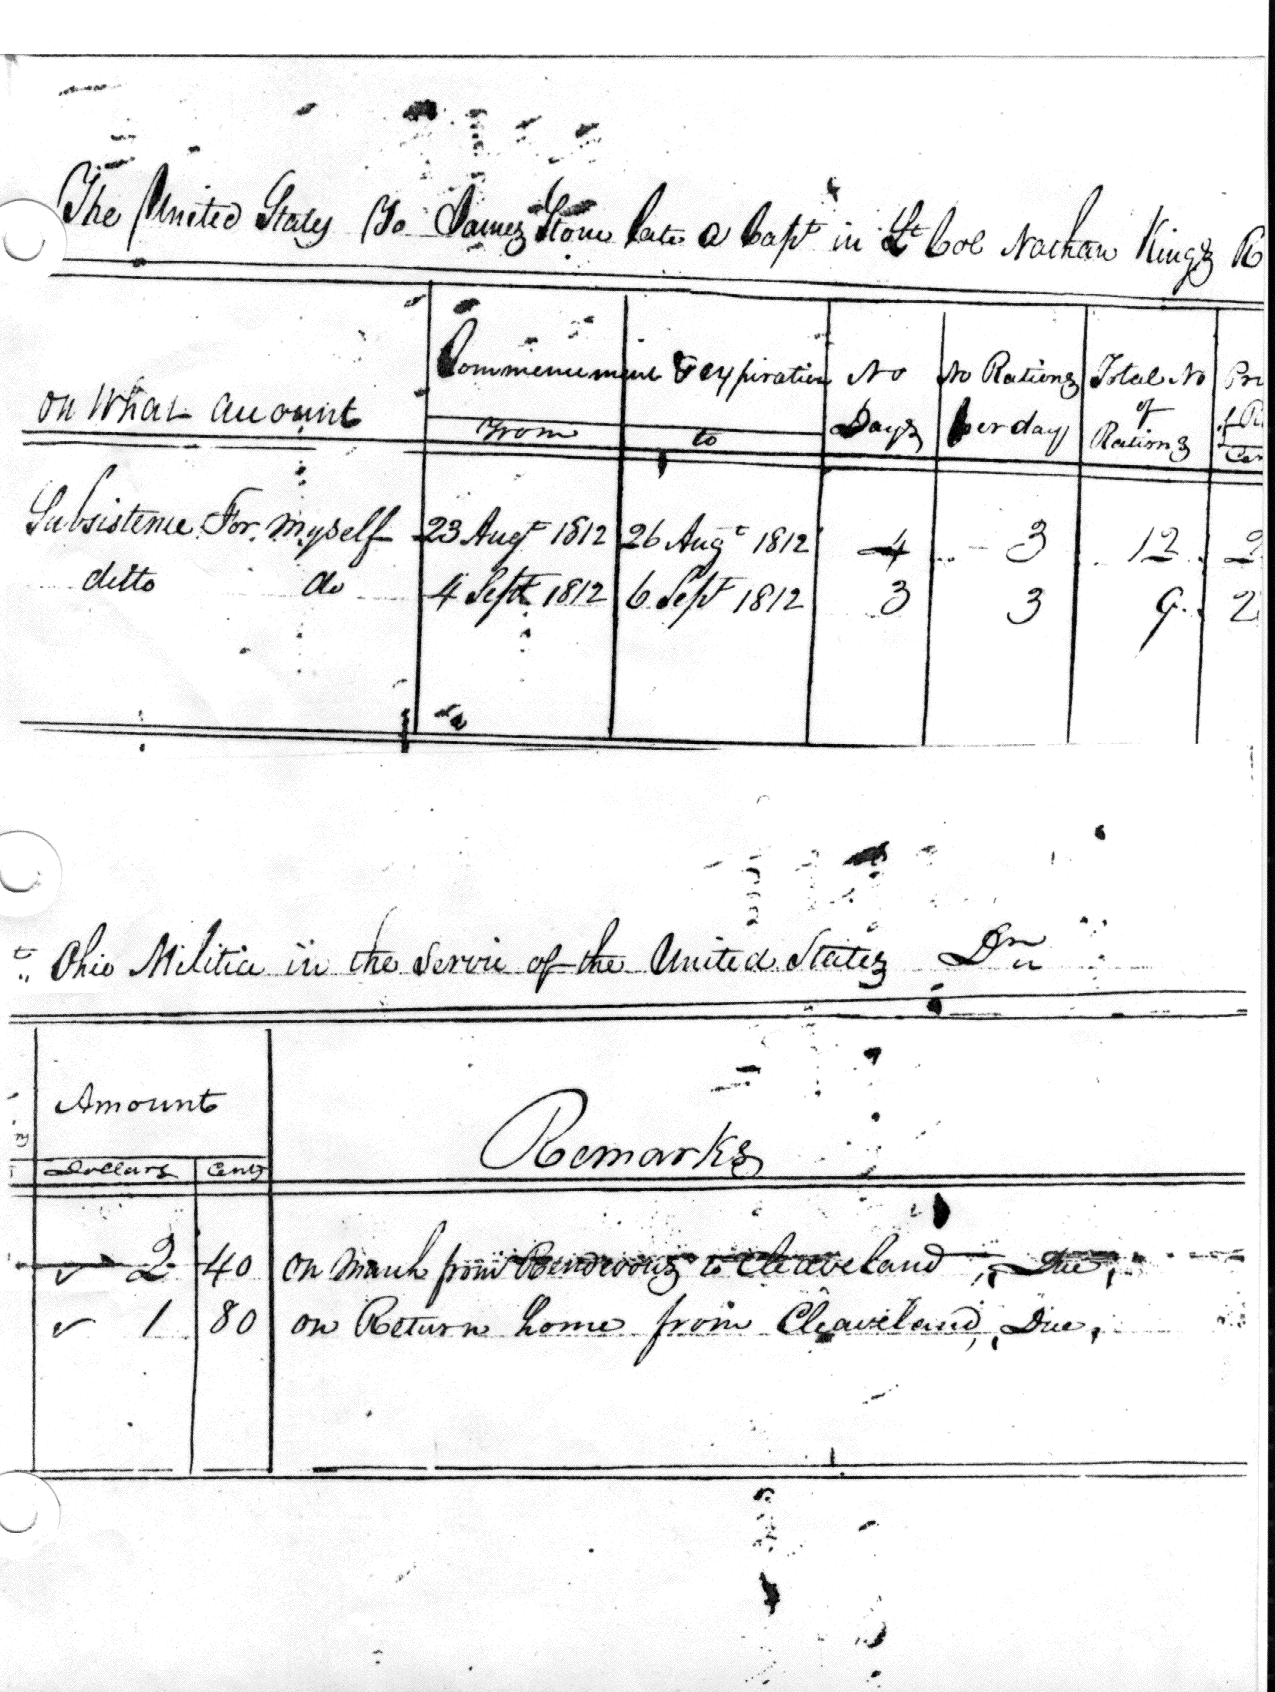 The United States To James Stone late a Capt in Lt Col Nathan Kings R
on What account
Commencement & expiration
From
to
No Days
No Rations per day
Total No of Rations
Pri
of R
Cen
Subsistence For myself 23 Augt 1812 26 Augt 1812 4 3 12 2
ditto do 4 Sept 1812 6 Sept 1812 3 3 9 2
t Ohio Militia in the Servic of the United States Dr
Amount
Dollars Cents
Remarks
2 40 on March from Rendezvous to Cleaveland, Due,
1 80 on Return home from Cleaveland, Due,